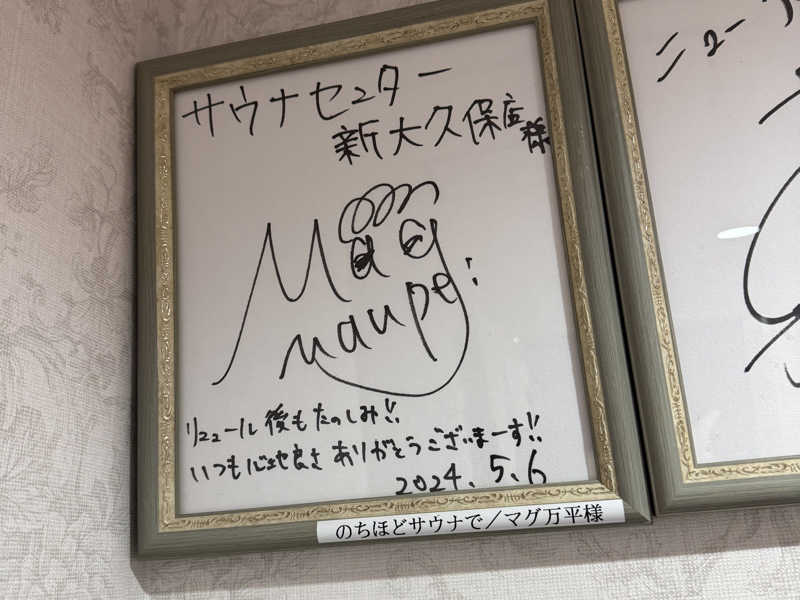 サウナセンター
新大久保店様
Mag
manpei
リニューアル後もたのしみ!!
いつも心地良さありがとうございまーす!!
2024.5.6
のちほどサウナで／マグ万平様
ニュー